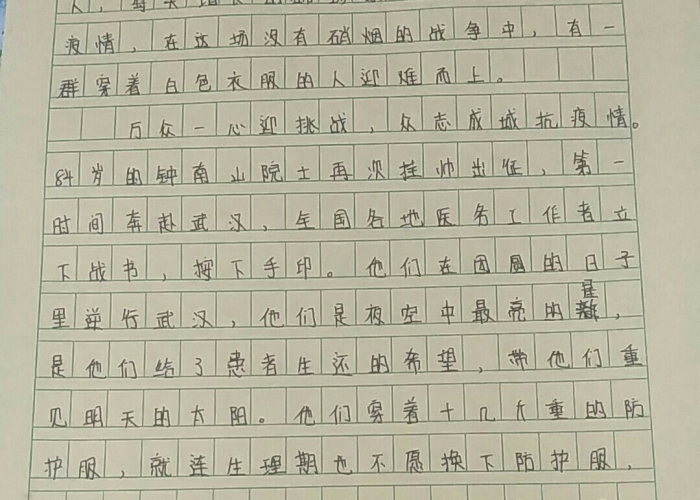 人，每天
疫情，在这场没有硝烟的战争中，有一
群穿着白色衣服的人迎难而上。
万众一心迎挑战，众志成城抗疫情。
84岁的钟南山院士再次挂帅出征，第一
时间奔赴武汉，全国各地医务工作者立
下战书，按下手印。他们在团圆的日子
里逆行武汉，他们是夜空中最亮的星，
是他们给了患者生还的希望，带他们重
见明天的太阳。他们穿着十几斤重的防
护服，就连生理期也不愿换下防护服，